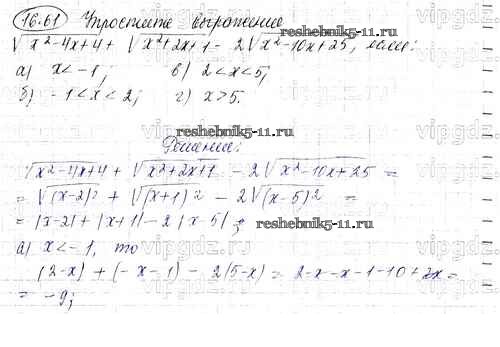 16.61 Упростите выражение
√x²-4x+4 + √x²+2x+1 - 2√x²-10x+25, если:
а) x<-1; в) 2<x<5;
reshebnik5-11.ru
б) -1<x<2; г) x>5.
reshebnik5-11.ru
Решение:
vipgdz.ru
√x²-4x+4 + √x²+2x+1 - 2√x²-10x+25 =
= √(x-2)² + √(x+1)² - 2√(x-5)² =
= |x-2| + |x+1| - 2|x-5|;
reshebnik5-11.ru
а) x<-1, то
(2-x) + (-x-1) - 2(5-x) = 2-x-x-1-10+2x =
= -9;